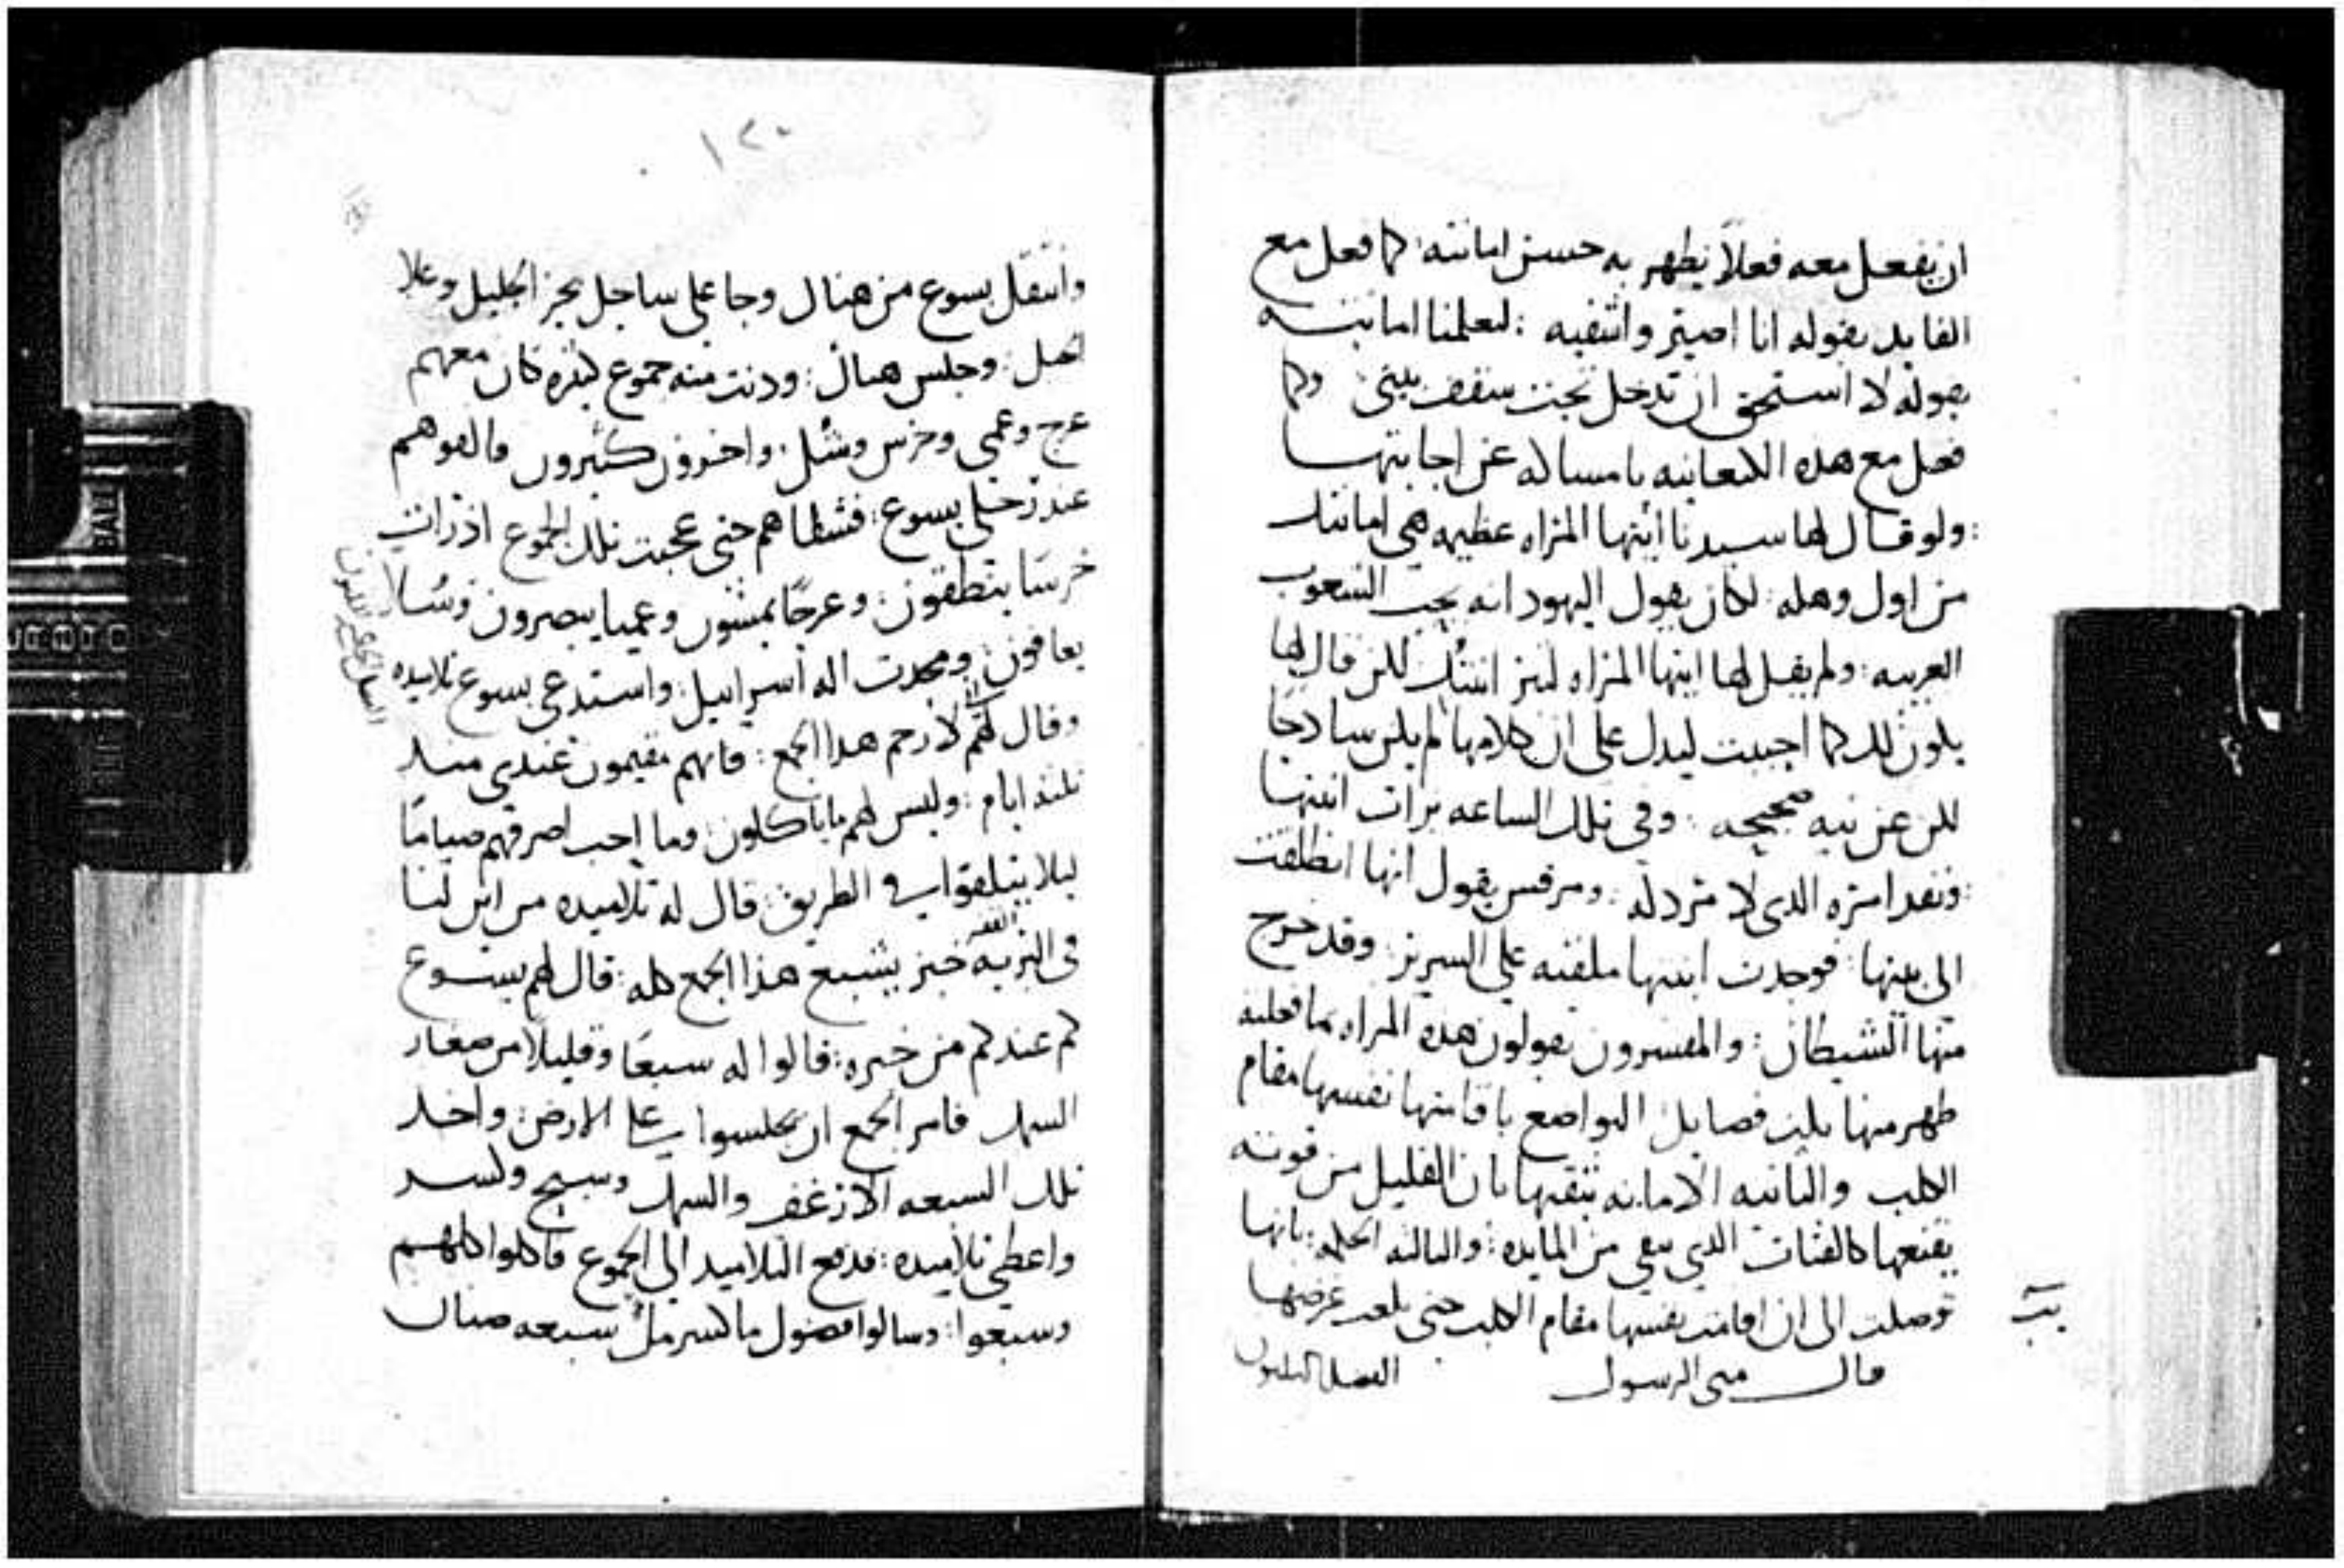 ان يفعل معه فعلاً يظهر به حسن امانته: كما فعل مع
القايد بقوله انا اصير واشفيه: ليعلمنا امانته
بقوله لا استحق ان تدخل تحت سقف بيتي وكما
فعل مع هذه الكنعانيه بامساكه عن اجابتها
: ولو قال لها سيدنا ايتها المراه عظيمه هي امانتك
من اول وهله: لكان يقول اليهود انه يحب الشعوب
الغريبه: ولم يقل لها ايتها المراه لتبر ابنتك لكن قال لها
يكون لك كما احببت ليدل على ان كلامها لم يكن سادجًا
لكن عن نيه صحيحه: وفي تلك الساعه برات ابنتها
: ونفد امره الدى لا مرد له: ومرقس يقول انها انطلقت
الى بيتها: فوجدت ابنتها ملقيه على السرير: وقد خرج
منها الشيطان: والمفسرون يقولون هده المراه بما فعلته
ظهر منها تلت فضايل التواضع باقامتها نفسها مقام
الكلب والتانيه الامانه بثقتها بان القليل من قوته
يقنعها كالفتات الدي يبقى من المايده: والتالته الحكمه: بانها
توصلت الى ان اقامت نفسها مقام الكلب حتى بلغت غرضها
قال متى الرسول الفصل
١٢٠
وانتقل يسوع من هناك وجا على ساحل بحر الجليل وعلا
الجبل: وجلس هناك: ودنت منه جموع كثيره كان معهم
عرج وعمي وخرس وشل: واخرون كثيرون فالقوهم
عند رجلي يسوع: فشفاهم حتى عجبت تلك الجموع اذ رات
خرسًا ينطقون: وعرجًا يمشون وعميا يبصرون وشلا
يعافون: ومجدت اله اسراييل: واستدعى يسوع تلاميده
وقال لهم لارحم هدا الجمع: فانهم مقيمون عندي مند
تلتة ايام: وليس لهم ما ياكلون: وما احب اصرفهم صيامًا
ليلا يتبلقوا في الطريق: قال له تلاميده من اين لنا
في البريه خبز يشبع هذا الجمع كله: قال لهم يسوع
كم عندكم من خبزه: قالوا له سبعًا وقليلًا من صغار
السمك فامر الجمع ان يجلسوا على الارض: واخد
تلك السبعه الارغف والسمك وسبح وكسر
واعطى تلاميده: فدفع التلاميد الى الجموع فاكلوا كلهم
وشبعوا: وشالوا فضول ما كسر مل سبعه صنان